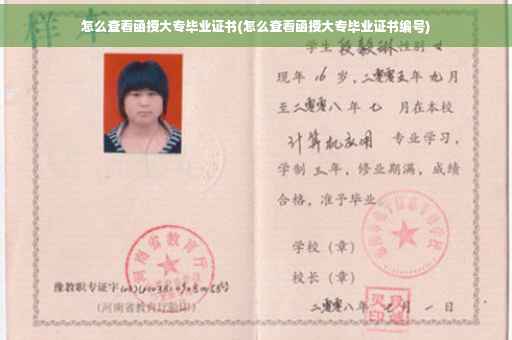 怎么查看函授大专毕业证书(怎么查看函授大专毕业证书编号)
样本
学生 段毅琳 性别 女
现年 16 岁，二零零五年 九月
至二零零八年 七 月在本校
计算机应用 专业学习，
学制 三年，修业期满，成绩
合格，准予毕业
学校（章）
校长（章）
二零零八年 七月 一日
河南省教育厅
豫教职专证字
（河南省教育厅验印）